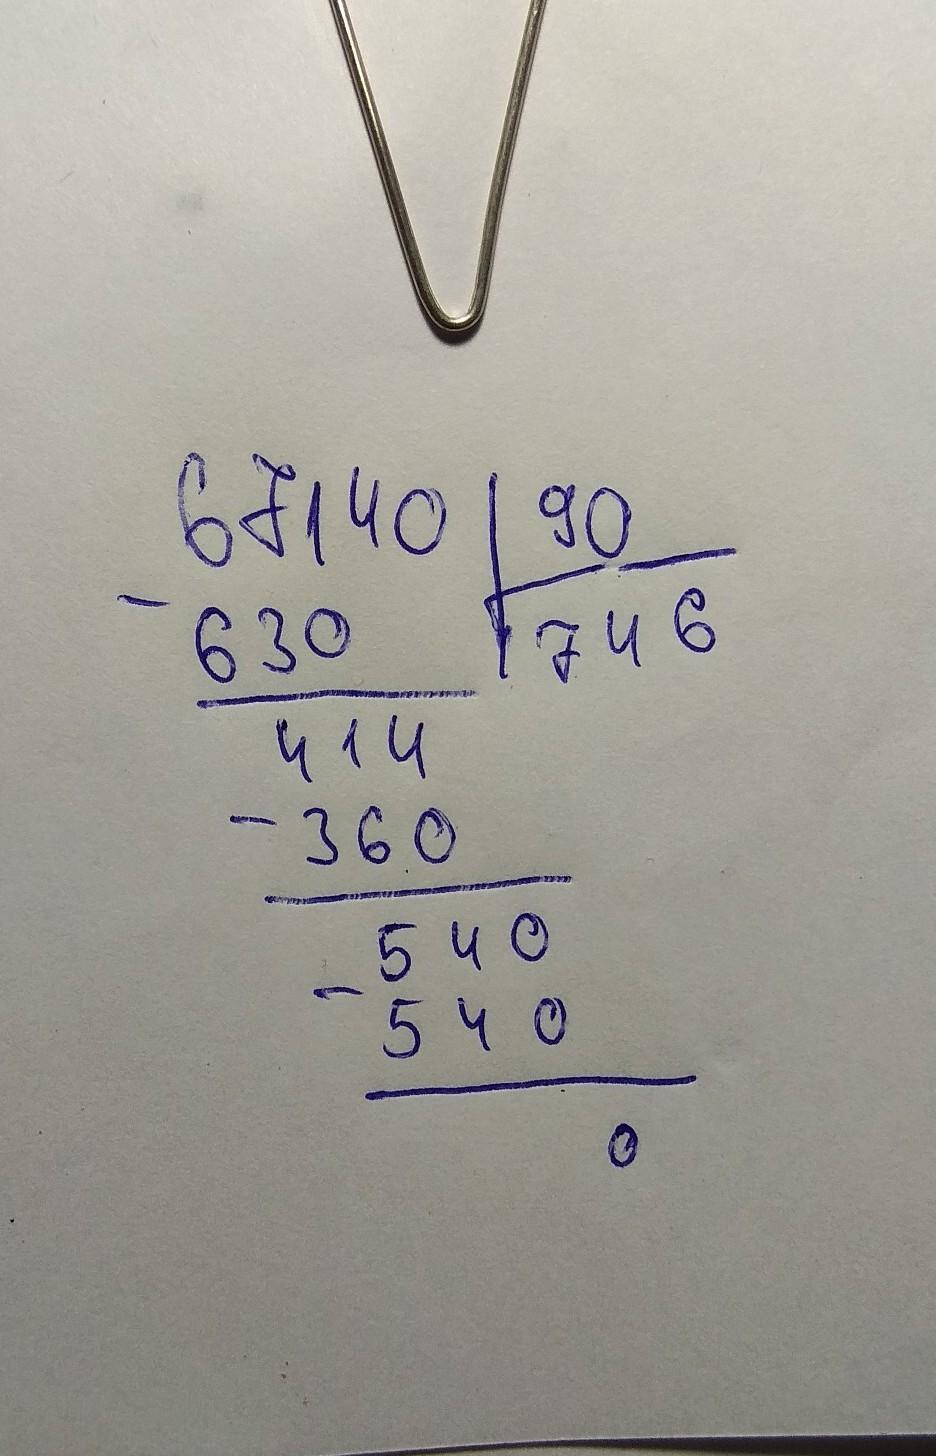 67140 | 90
- 630 | 746
414
- 360
540
- 540
0